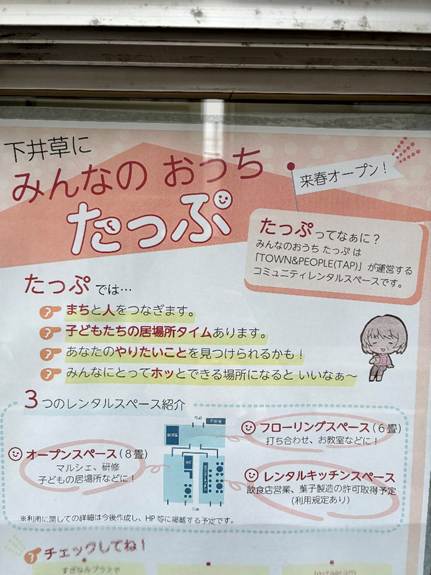 下井草に
みんなの おうち
たっぷ
来春オープン！
たっぷってなぁに？
みんなのおうち たっぷ は
「TOWN&PEOPLE(TAP)」が運営する
コミュニティレンタルスペースです。
たっぷ では…
まちと人をつなぎます。
子どもたちの居場所タイムあります。
あなたのやりたいことを見つけられるかも！
みんなにとってホッとできる場所になると いいなぁ〜
3つのレンタルスペース紹介
フローリングスペース（6畳）
打ち合わせ、お教室などに！
オープンスペース（8畳）
マルシェ、研修
子どもの居場所などに！
レンタルキッチンスペース
飲食店営業、菓子製造の許可取得予定
（利用規定あり）
※利用に関しての詳細は今後作成し、HP等に掲載する予定です。
チェックしてね！
すぎなみプラスや
Instagram